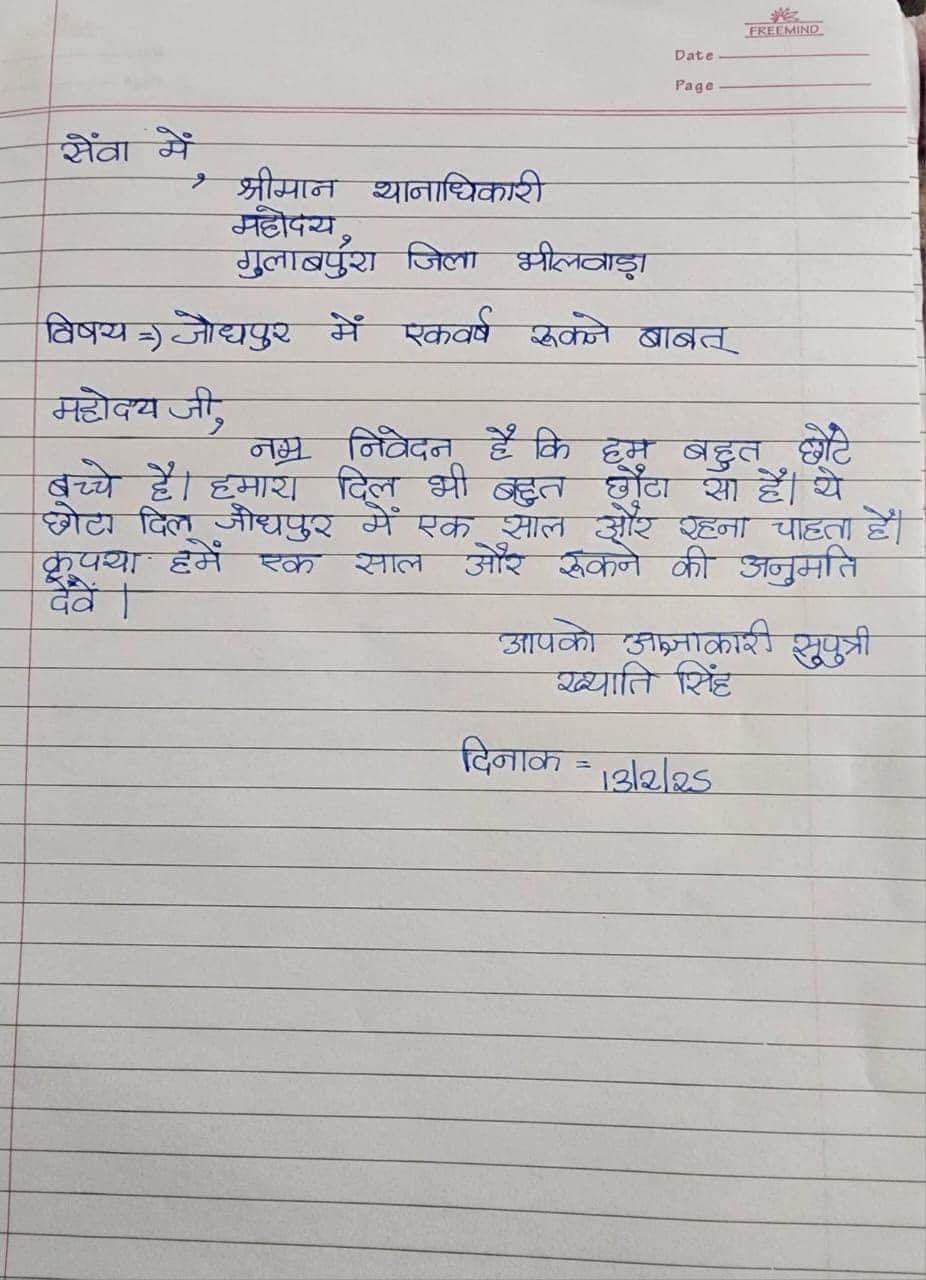 FREEMIND
Date
Page
सेंवा में,
श्रीमान थानाधिकारी
महोदय,
गुलाबपुरा जिला भीलवाड़ा
विषय => जौधपुर में एकवर्ष रूकने बाबत्
महोदय जी,
नम्र निवेदन है कि हम बहुत छौटे
बच्चे है। हमारा दिल भी बहुत छौटा सा है। ये
छोटा दिल जोधपुर में एक साल और रहना चाहता है।
कृपया हमें एक साल और रूकने की अनुमति
देवें।
आपको आज्ञाकारी सुपुत्री
ख्याति सिंह
दिनाक = 13/2/25